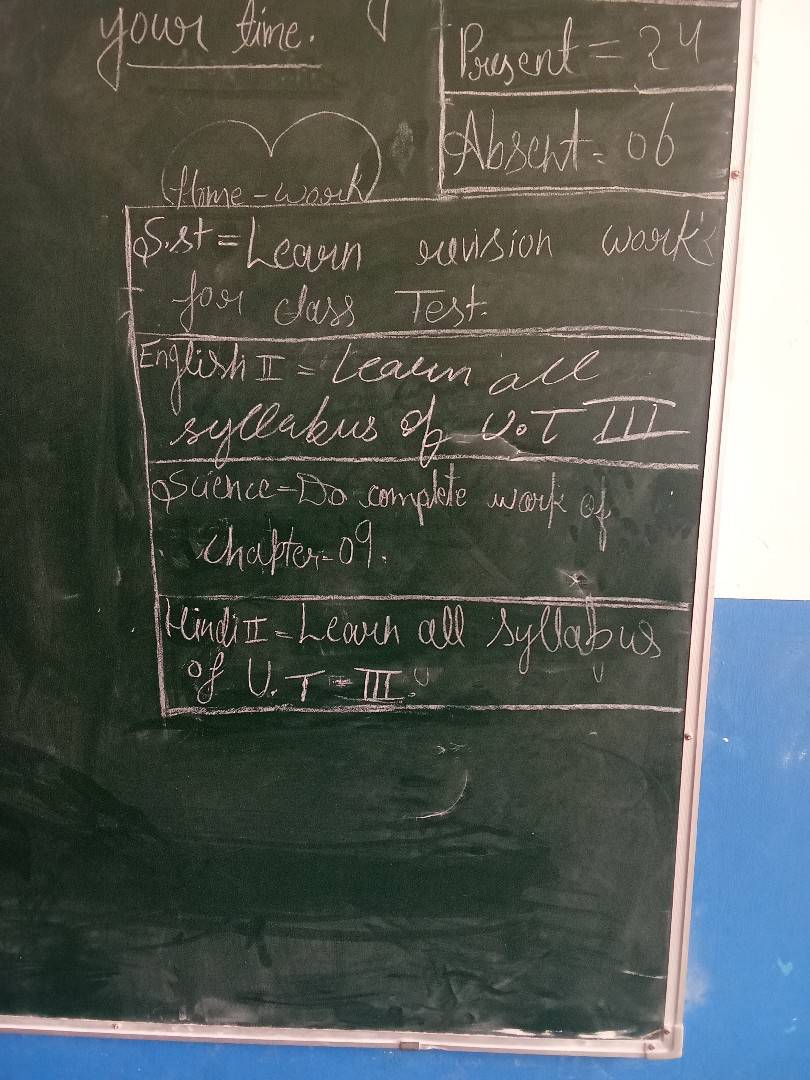 your time.
Present = 24
Absent = 06
Home-work
S.st = Learn revision work
for class Test.
English II = Learn all
syllabus of U.T III
Science - Do complete work of
Chapter-09.
Hindi II = Learn all syllabus
of U.T - III.